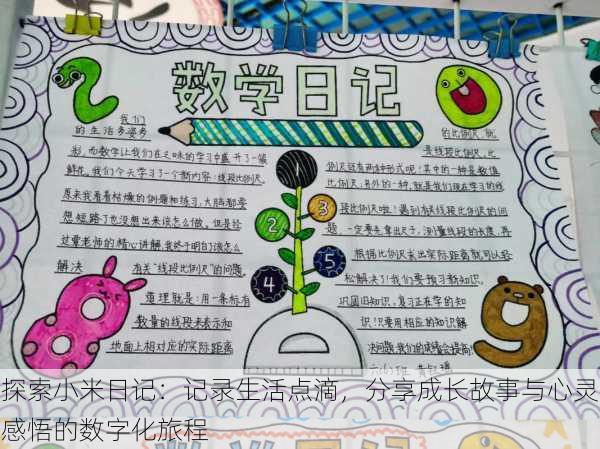 数学日记
我们
的生活多姿多
彩,而数学让我们在乏味的学习中盛开了一簇
鲜花。我们今天学习了一个新内容:线段比例尺。
原来我看着枯燥的例题和练习,大脑都要
想短路了也没想出来该怎么做。但是经
过曹老师的精心讲解,我终于明白了该怎么
解决
有关“线段比例尺”的问题。
查理就是:用一条标有
数量的线段来表示和
地面上相对应的实际距离
1
2
3
4
5
的比例尺,就
是线段比例尺,比
例尺还有两种形式呢!其中的一种是数值
比例尺,另外的一种,就是我们现在学习的线
段比例尺啦!遇到有关线段比例尺的问
题,一定要先拿出尺子,测量线段的长度,再
根据比例尺求出实际距离就可以轻
松解决了!我们要预习新知识,
巩固旧知识,复习正在学的知
识!只要用相应的知识解
决问题,我们的成绩会提高
六(小)班
探索小米日记:记录生活点滴,分享成长故事与心灵
感悟的数字化旅程